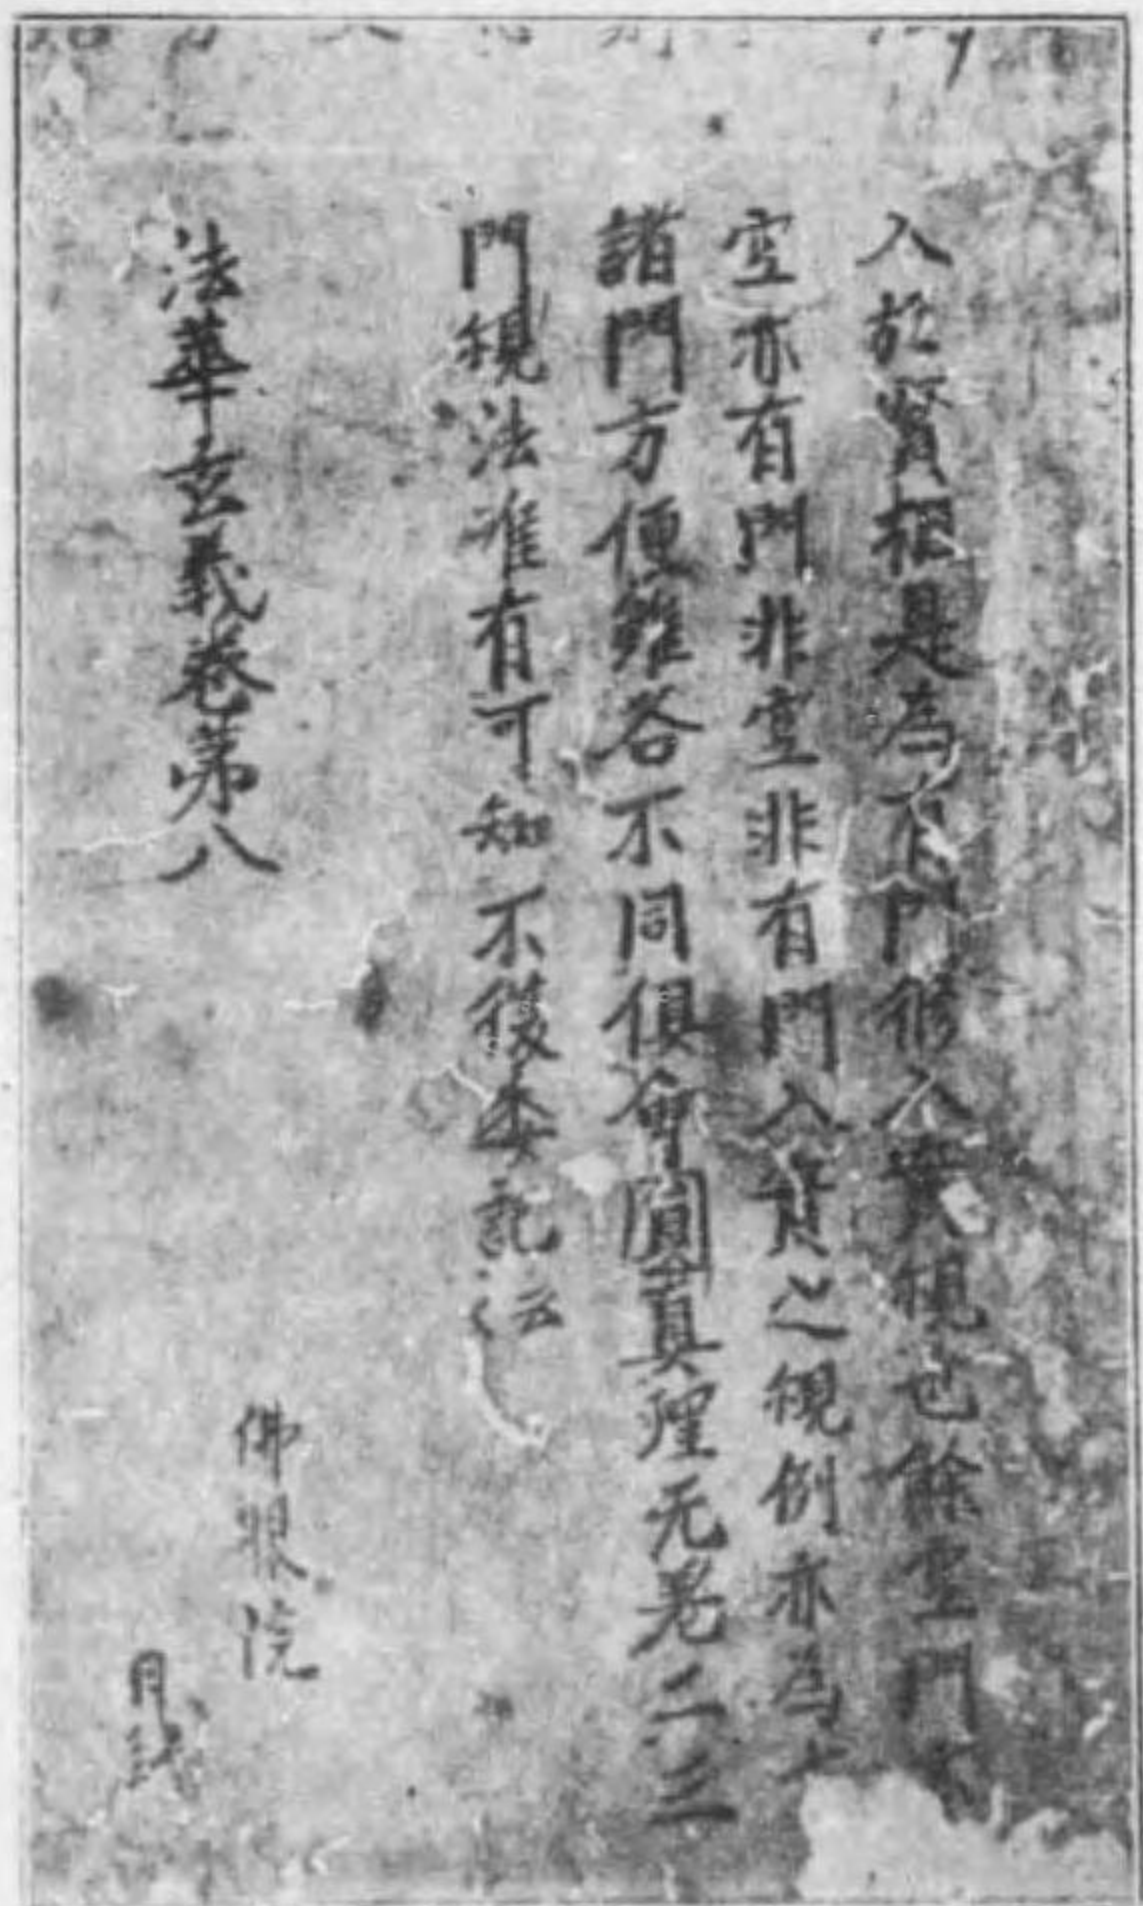 入於實相是為有門修入實觀也餘空門亦
空亦有門非空非有門入實之觀例亦為十
諸門方便雖各不同俱會圓真理无異二三
門觀法准有可知不復委記云
法華玄義卷第八
佛眼院
月